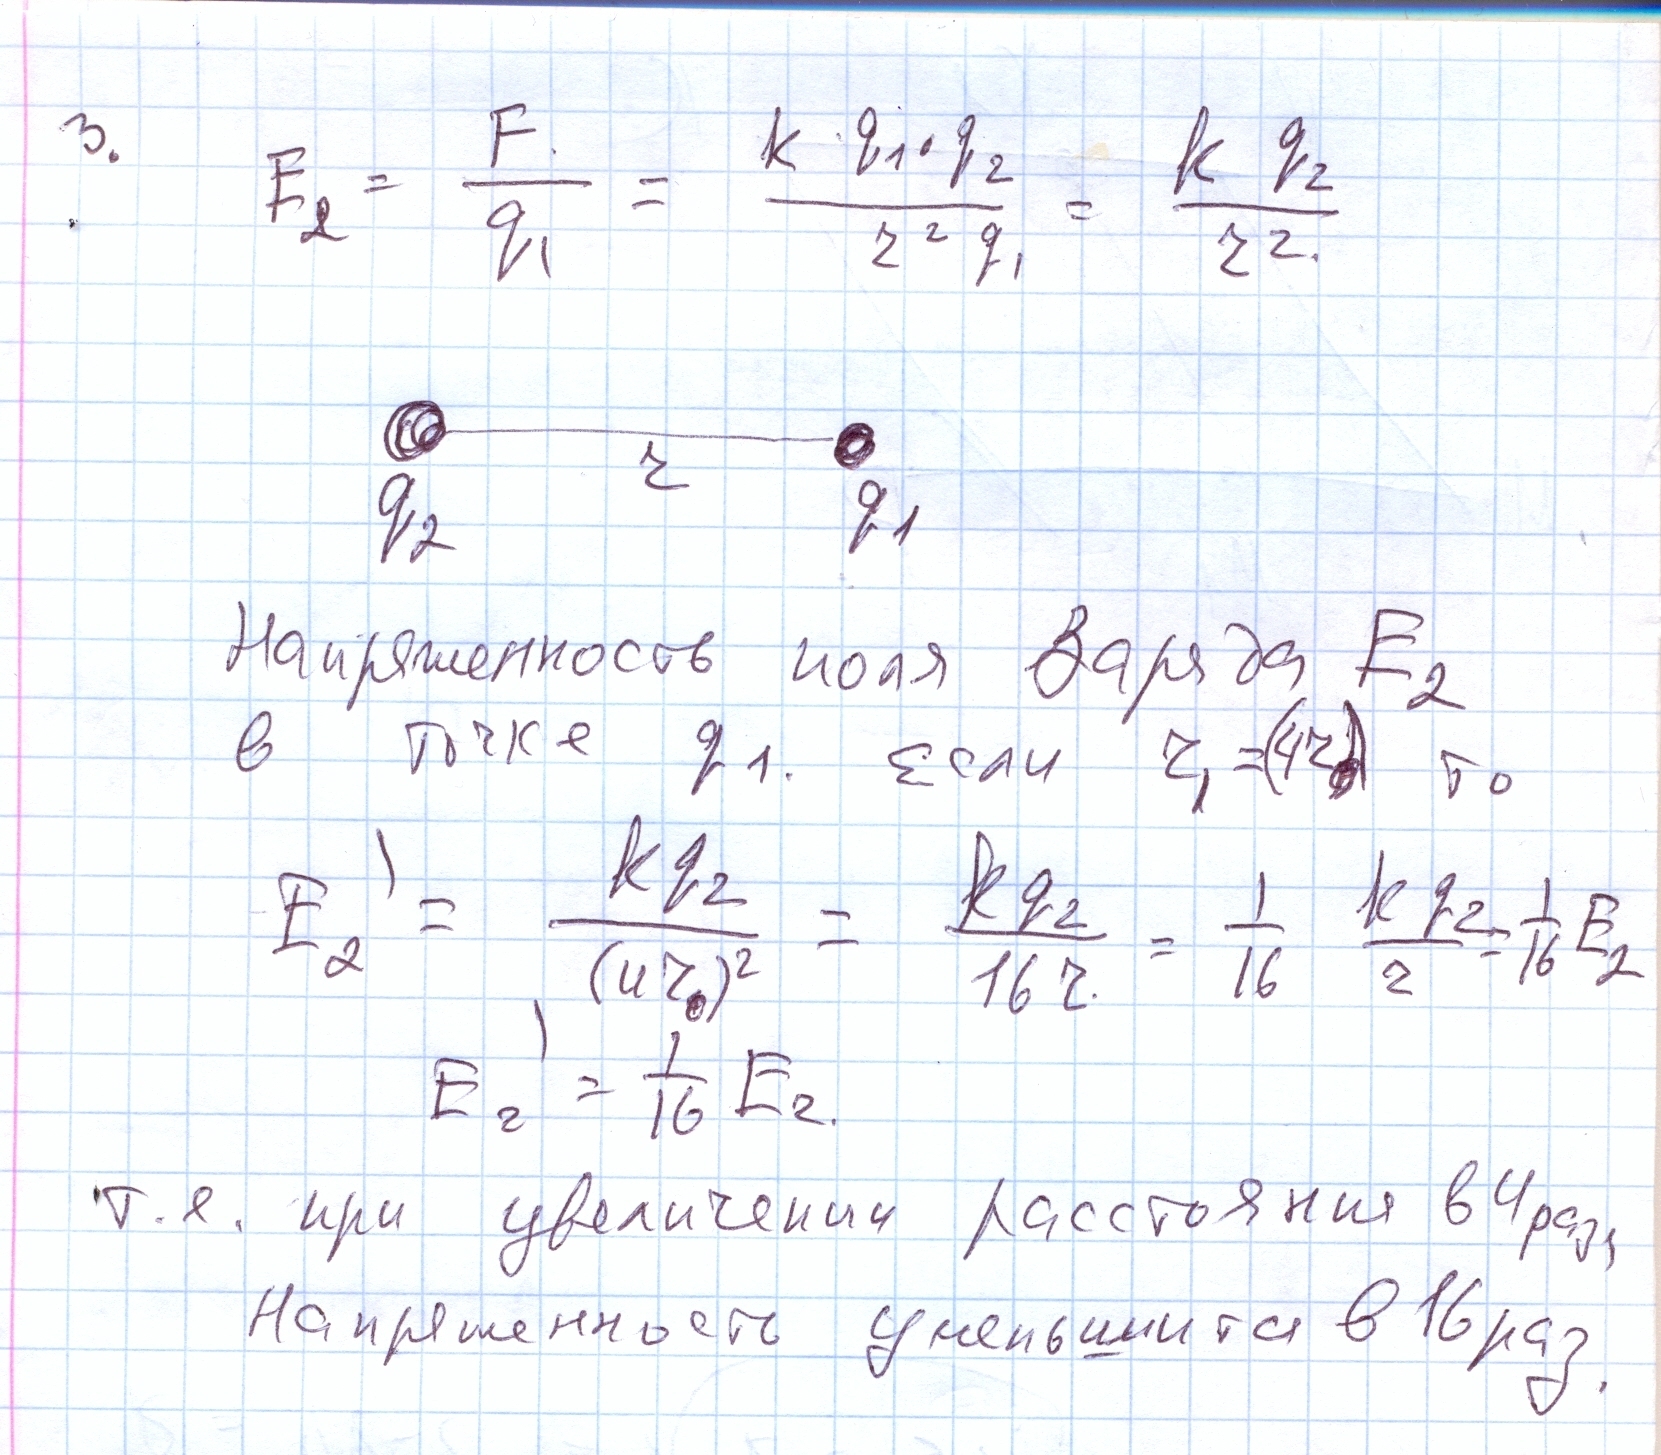 3.
E₂ = F/q₁ = k·q₁·q₂/(r² q₁) = k q₂/r².
r
q₂ q₁
Напряженность поля Заряда E₂
в точке q₁. Если r₁ =(4r) то
E₂' = kq₂/(4r)² = kq₂/16r. = 1/16 kq₂/r = 1/16 E₂
E₂' = 1/16 E₂.
т.е. при увеличении расстояния в 4 раз,
Напряженность уменьшится в 16 раз.